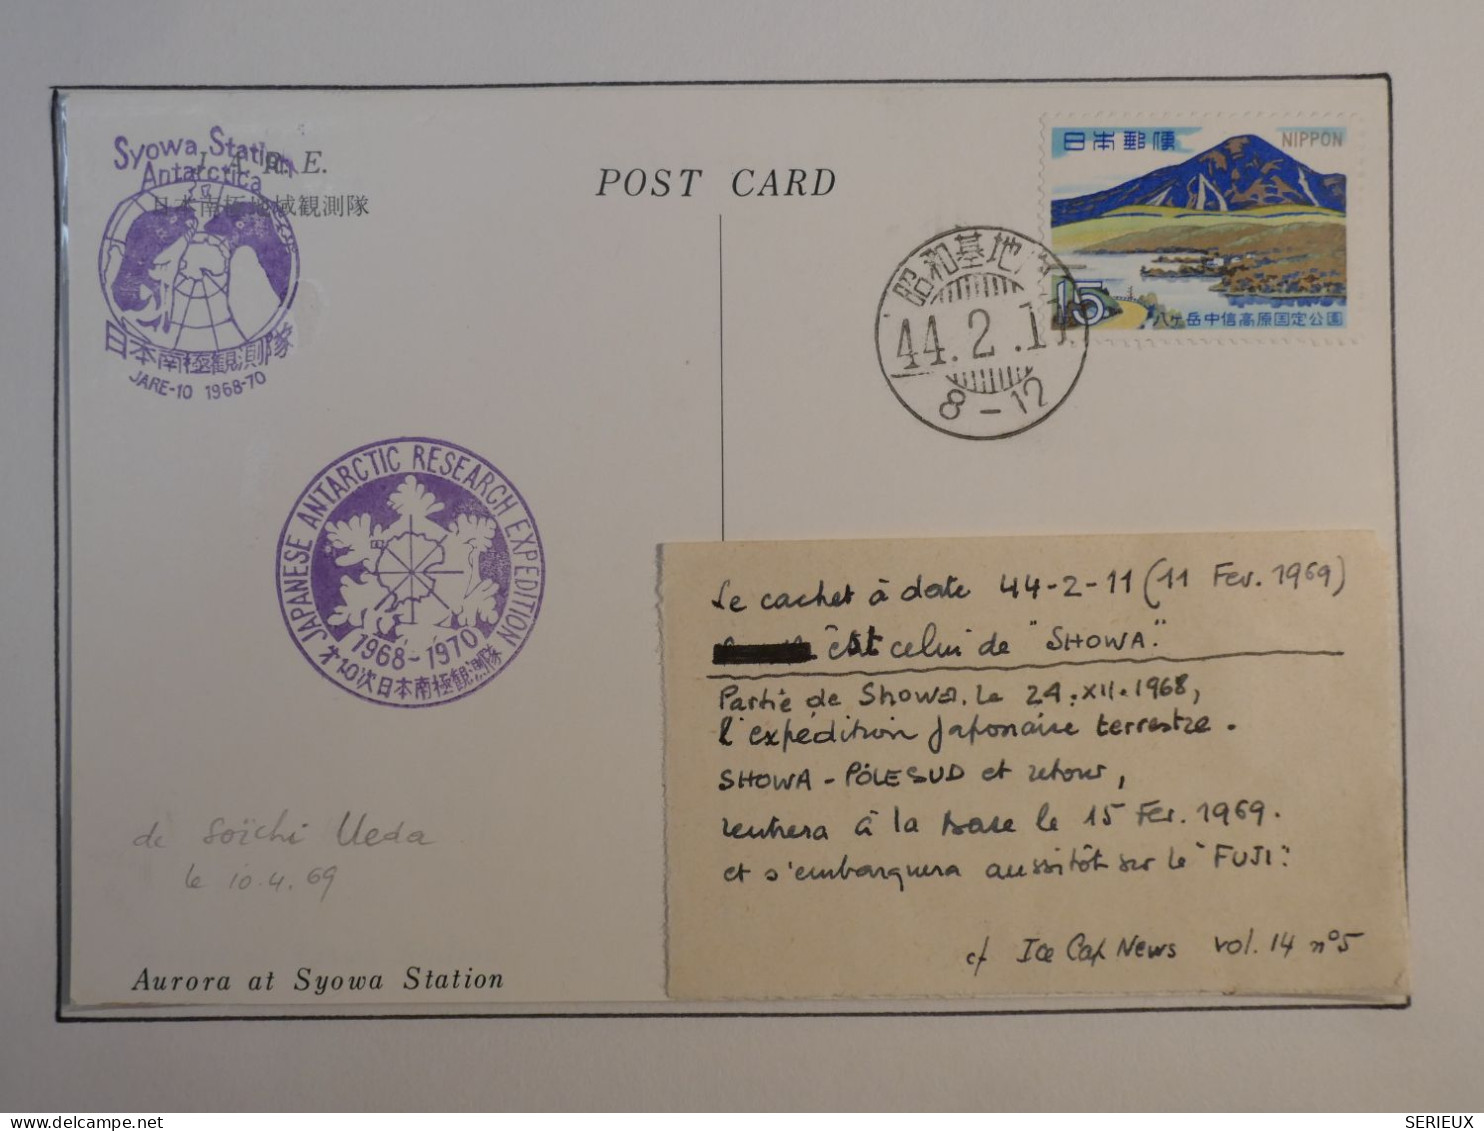 Syowa Station
Antarctica
J. A. R. E.
日本南極地域観測隊
日本南極観測隊
JARE-10 1968-70
POST CARD
日本郵便 NIPPON
15
八ヶ岳中信高原国定公園
昭和基地内
44.2.11
8-12
JAPANESE ANTARCTIC RESEARCH EXPEDITION
1968-1970
第10次日本南極観測隊
Le cachet à date 44-2-11 (11 Fev. 1969)
est celui de "SHOWA".
Partie de SHOWA, le 24.XII.1968,
l'expédition Japonaise terrestre.
SHOWA - PÔLE SUD et retour,
rentrera à la base le 15 Fev. 1969.
et s'embarquera aussitôt sur le "FUJI".
cf Ice Cap News vol. 14 n°5
de Soïchi Ueda
le 10.4.69
Aurora at Syowa Station
SERIEUX